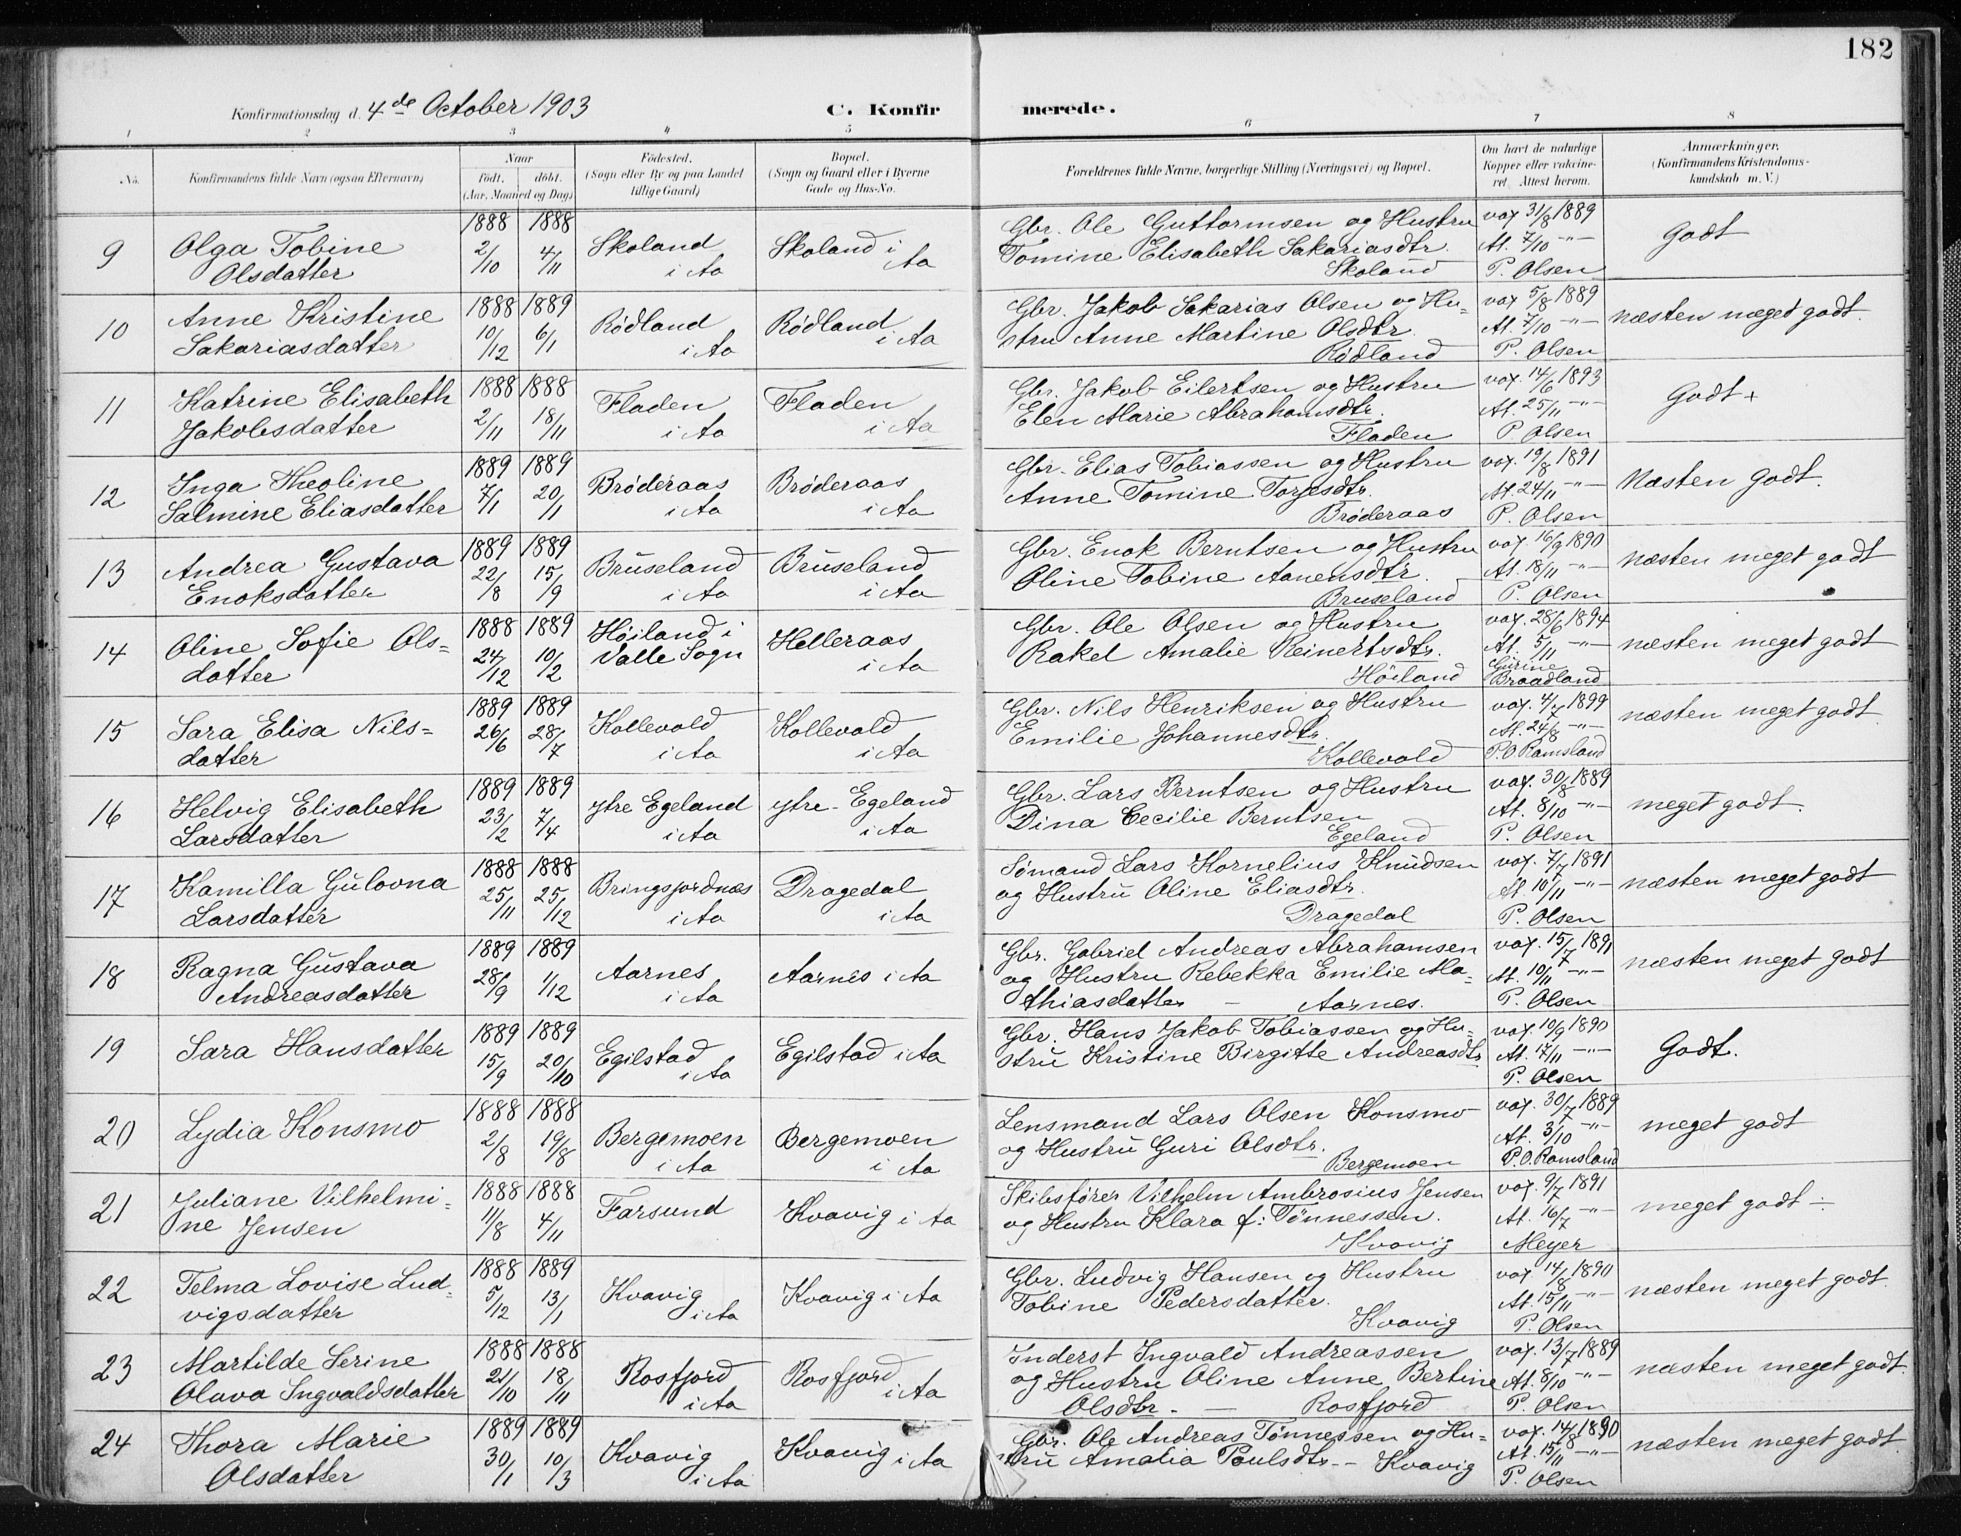 182
Konfirmationsdag d. 4de October 1903 C. Konfirmerede.
1 2 3 4 5 6 7 8
No. Konfirmandens fulde Navn (ogsaa Efternavn) Naar født. døbt. (Aar, Maaned og Dag) Fødested. (Sogn eller By og paa Landet tillige Gaard) Bopæl. (Sogn og Gaard eller i Byerne Gade og Hus-No. Forældrenes fulde Navne, borgerlige Stilling (Næringsvei) og Bopæl. Om havt de naturlige Kopper eller vakcineret. Attest herom. Anmærkninger. (Konfirmandens Kristendomskundskab m. V.)
9 Olga Tobine 1888 1888 Skoland Skoland i Gbr. Ole Guttormsen og Hustru vax. 31/8 1889 Godt
Olsdatter 2/10 4/11 i Aa Aa Tomine Elisabeth Sakariasdtr. At. 7/10 -"-
Skoland P. Olsen
10 Anne Kristine 1888 1889 Rødland Rødland Gbr. Jakob Sakarias Olsen og Hu- vax 5/8 1889 næsten meget godt.
Sakariasdatter 10/12 6/1 i Aa i Aa stru Anne Martine Olsdtr. At. 7/10 -"-
Rødland P. Olsen
11 Katrine Elisabeth 1888 1888 Fladen Fladen Gbr. Jakob Eilertsen og Hustru vax. 14/6 1893 Godt +
Jakobsdatter 2/11 18/11 i Aa i Aa Elen Marie Abrahamsdtr. At. 25/11 -"-
Fladen P. Olsen
12 Inga Theoline 1889 1889 Brøderaas Brøderaas Gbr. Elias Tobiassen og Hustru vax. 19/8 1891 Næsten Godt.
Salmine Eliasdatter 7/1 20/1 i Aa i Aa Anne Tomine Torjesdtr. At. 24/11 -"-
Brøderaas P. Olsen
13 Andrea Gustava 1889 1889 Bruseland Bruseland Gbr. Enok Berntsen og Hustru vax. 16/9 1890 næsten meget godt
Enoksdatter 22/8 15/9 i Aa i Aa Oline Tobine Aanensdtr. At. 18/11 -"-
Bruseland P. Olsen
14 Oline Sofie Ols- 1888 1889 Høiland i Helleraas Gbr. Ole Olsen og Hustru vax. 28/6 1894 næsten meget godt
datter 24/12 10/2 Valle Sogn i Aa Rakel Amalie Reinertsdtr. At. 5/11 -"-
Høiland Gurine Braadland
15 Sara Elisa Nils- 1889 1889 Kollevold Kollevold Gbr. Nils Henriksen og Hustru vax. 4/7 1899 næsten meget godt
datter 26/6 28/7 i Aa i Aa Emilie Johannesdtr. At. 24/8 -"-
Kollevold P.O. Ramsland
16 Helvig Elisabeth 1889 1889 ytre Egeland ytre-Egeland Gbr. Lars Berntsen og Hustru vax. 30/8 1889 meget godt.
Larsdatter 23/2 7/4 i Aa i Aa Dina Cecilie Berntsen At. 8/10 -"-
Egeland P. Olsen
17 Kamilla Gulovna 1888 1888 Bringsjordnæs Dragedal Sømand Lars Kornelius Knudsen vax. 7/7 1891 næsten meget godt
Larsdatter 25/11 25/12 i Aa i Aa og Hustru Oline Eliasdtr. At. 10/11 -"-
Dragedal P. Olsen
18 Ragna Gustava 1889 1889 Aarnes Aarnes i Aa Gbr. Gabriel Andreas Abrahamsen vax. 15/7 1891 næsten meget godt
Andreasdatter 28/9 1/12 i Aa og Hustru Rebekka Emilie Ma- At. 10/11 -"-
thiasdatter - Aarnes. P. Olsen
19 Sara Hansdatter 1889 1889 Egilstad Egilstad i Aa Gbr. Hans Jakob Tobiassen og Hu- vax. 10/9 1890 Godt.
15/9 20/10 i Aa stru Kristine Birgitte Andreasdtr At. 17/11 -"-
P. Olsen
20 Lydia Konsmo 1888 1888 Bergemoen Bergemoen Lensmand Lars Olsen Konsmo vax. 30/7 1889 meget godt
2/8 19/8 i Aa i Aa og Hustru Guri Olsdtr. At. 3/10 -"-
Bergemoen P.O. Ramsland
21 Juliane Vilhelmi- 1888 1888 Farsund Kvavig i Aa Skibsfører Vilhelm Ambrosius Jensen vax. 9/7 1891 meget godt -
ne Jensen 11/8 4/11 og Hustru Klara f: Tønnessen. At. 16/7 -"-
Kvavig Meyer
22 Telma Lovise Lud- 1888 1889 Kvavig Kvavig i Aa Gbr. Ludvig Hansen og Hustru vax 14/8 1890 næsten meget godt.
vigsdatter 5/12 13/1 i Aa Tobine Pedersdatter. At. 15/11 -"-
Kvavig P. Olsen
23 Martilde Serine 1888 1888 Rosfjord Rosfjord Inderst Ingvald Andreassen vax. 13/7 1889 næsten meget godt.
Olava Ingvaldsdatter 21/10 18/11 i Aa i Aa og Hustru Oline Anne Bertine At. 8/10 -"-
Olsdtr. - Rosfjord P. Olsen
24 Thora Marie 1889 1889 Kvavig Kvavig i Aa Gbr. Ole Andreas Tønnessen og Hu- vax. 14/8 1890 næsten meget godt
Olsdatter 30/1 10/3 i Aa stru Amalia Poulsdtr - Kvavig At. 15/11 -"-
P. Olsen